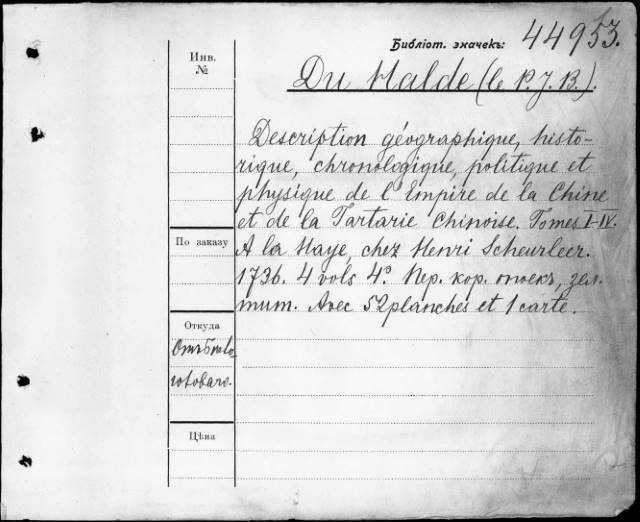 Библіот. значекъ: 44953.
Инв.
№
Du Halde (le P. J. B.).
Description géographique, histo-
rique, chronologique, politique et
physique de l'Empire de la Chine
et de la Tartarie Chinoise. Tomes I-IV.
По заказу
A la Haye, chez Henri Scheurleer.
1736. 4 vols 4º. Пер. кор. тисн., зол.
тит. Avec 52 planches et 1 carte.
Откуда
Цѣна